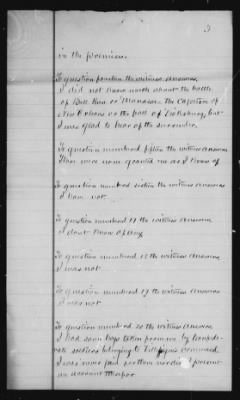 3
in the premises.
To question fourteen the witness answers
I did not know much about the battle
of Bull Run or Manassas. The Capture of
New Orleans or the fall of Vicksburg, but
I was glad to hear of the surrender.
To question numbered fifteen the witness answers
There were none granted me as I know of
To question numbered sixteen the witness answers
I have not.
To question numbered 17 the witness answers
I dont know of any.
To question numbered 18 the witness answers
I was not.
To question numbered 19 the witness answers
I was not
To question numbered 20 the witness answers
I had some hogs taken from me by
soldiers belonging to command
I was never paid for them nor did I present
an account therefor